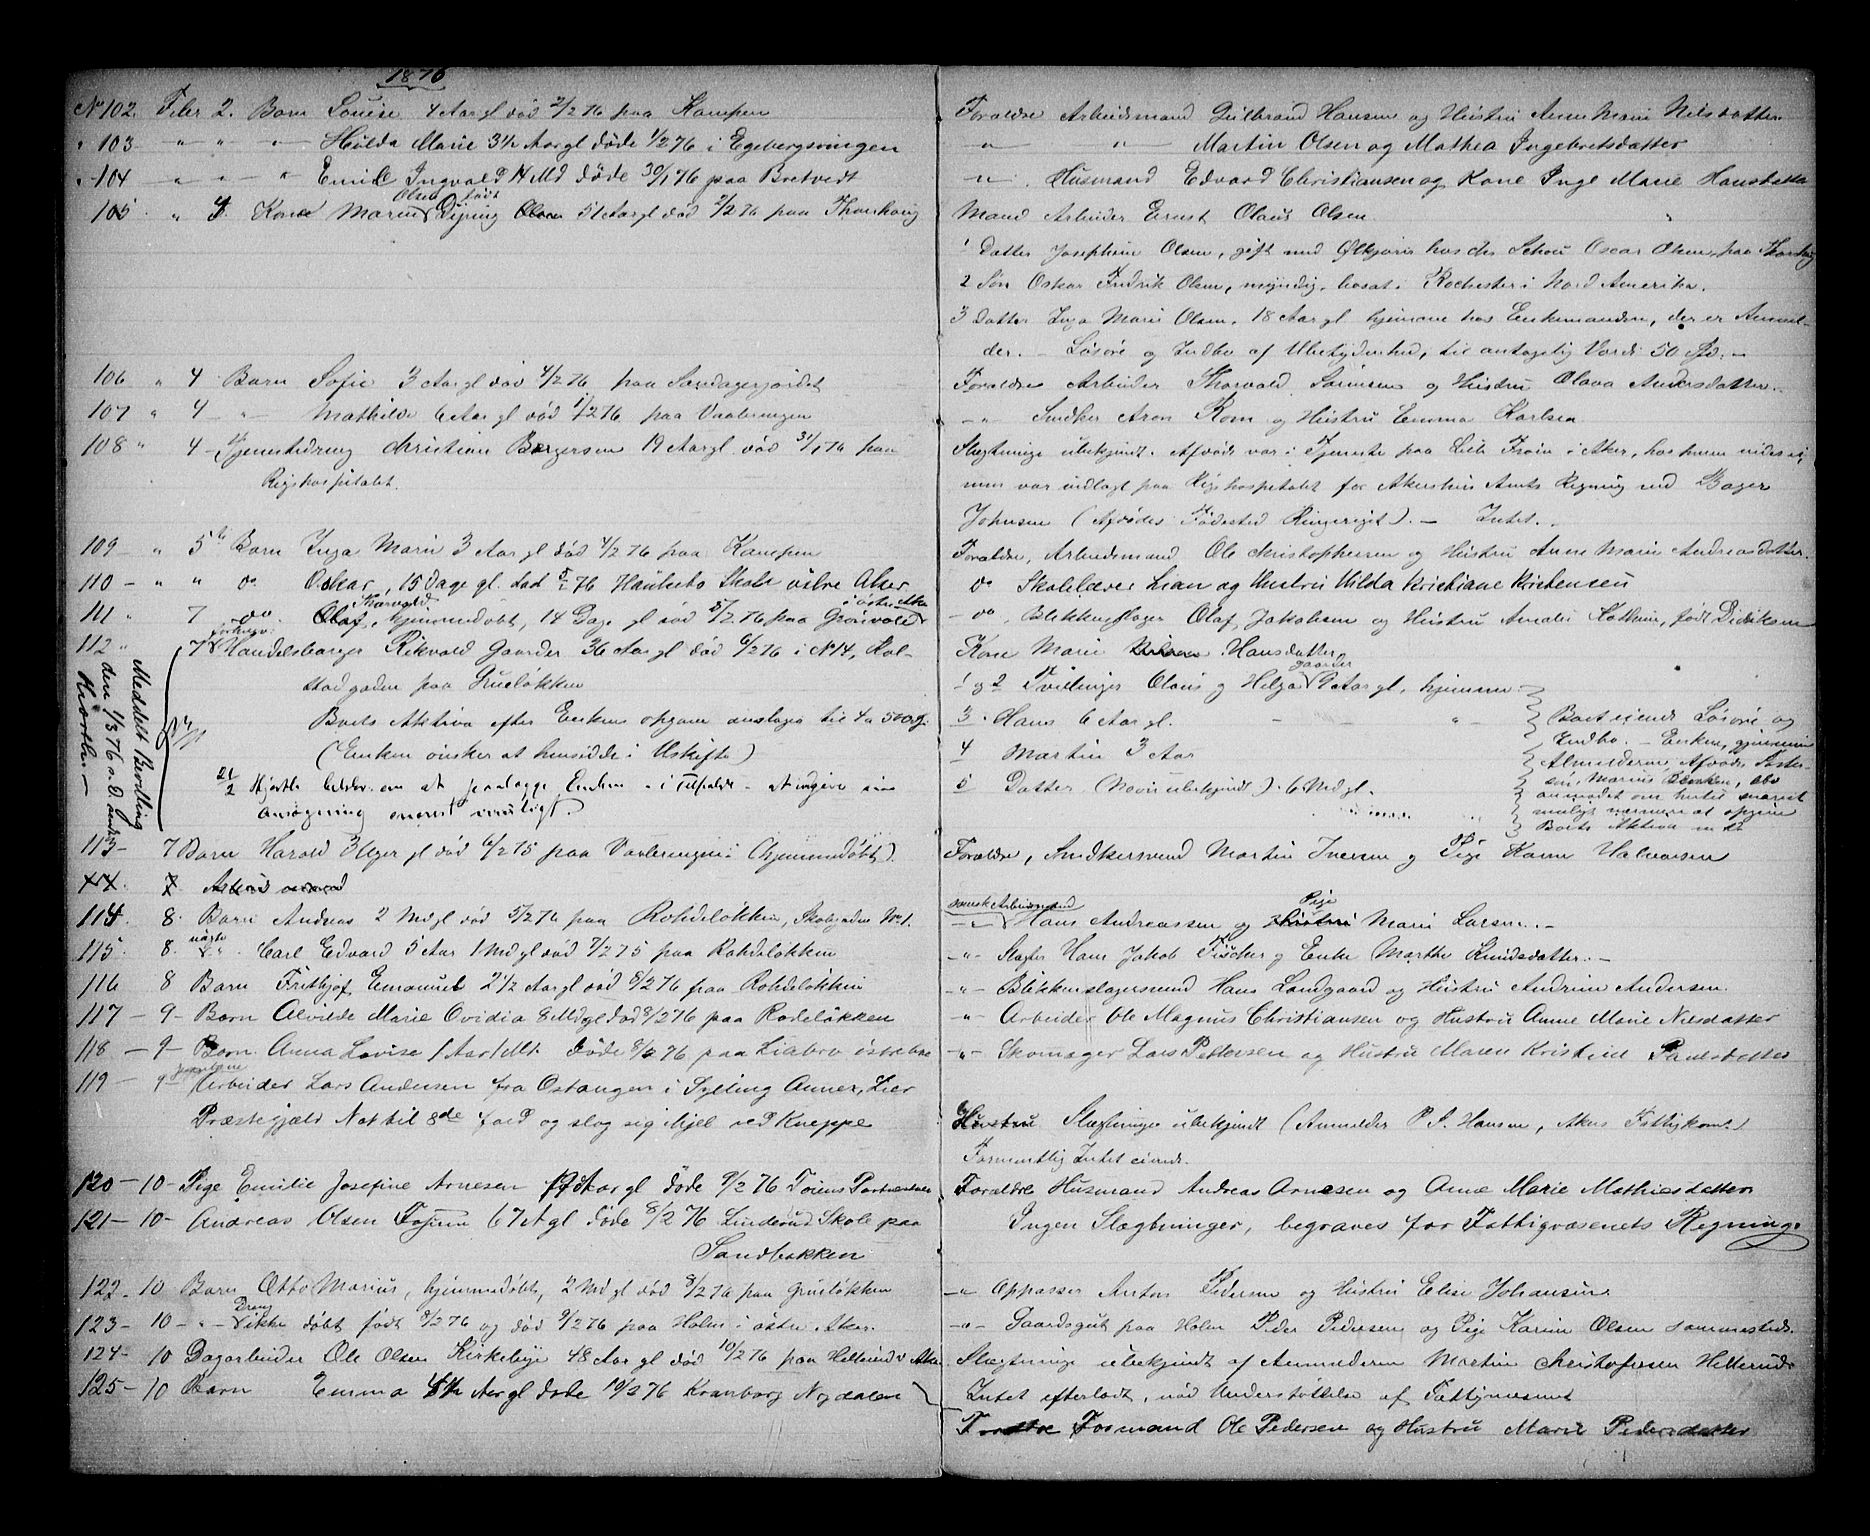 1876
No 102. Febr 2. Barn Louise 4 Aar gl død 2/2 76 paa Kampen
Forældre Arbeidsmand Gulbrand Hansen og Hustru Anne Marie Nilsdatter
" 103 " " " Hulda Marie 3½ Aar gl døde 1/2 76 i Egebergsvingen
" " Martin Olsen og Mathea Ingebretsdatter
" 104 " " " Emil Ingvald 14 Md døde 30/1 76 paa Bretvedt
" Husmand Edvard Christiansen og Kone Inge Marie Hansdatter
105 " 4. Kone Marie Olsen født Olsen 51 Aar gl død 2/2 76 paa Thorshaug
Mand Arbeider Ernst Olaus Olsen.
1 Datter Josephine Olsen, gift med Ølkjører hos Chr Schou Oscar Olsen, paa Thorshaug
2 Søn Oskar Fredrik Olsen, myndig, bosat i Rochester i Nord Amerika.
3 Datter Inga Marie Olsen, 18 Aar gl hjemme hos Enkemanden, der er Anmel-
der. - Løsøre og Indbo af Ubetydenhed, til antagelig Værdi 50 Spd. -
106 " 4 Barn Sofie 3 Aar gl død 4/2 76 paa
Forældre Arbeider Thorvald Sørensen og Hustru Olava Andersdatter. -
107 " 4 " Mathilde 6 Aar gl død 1/2 76 paa Vaalerengen
" Snedker Aron Rom og Hustru Emma Karlsen
108 " 4 Tjenestedreng Christian Borgersen 19 Aar gl. død 31/1 76 paa
Rigshospitalet.
Slægtninge ubekjendt. Afdøde var i Tjeneste paa Lille Frøen i Aker,
men var indlagt paa Rigshospitalet for Akershus Amts Regning ved Bager
Johnsen (Afdødes Fødested Ringeriget). - Intet. -
109 - " 5 Barn Inga Marie 3 Aar gl død 4/2 76 paa Kampen
Forældre, Arbeidsmand Ole Christophersen og Hustru Anne Marie Andreasdatter.
110 - " " do Oskar, 15 Dage gl. død 76 Skole østre Aker
do Skolelærer Lian og Hustru Hilda Kristiane Kristensen
111 " 7 do. Olaf Thorvald, hjemmedøbt, 14 Dage gl død 5/2 76 paa Grønvold i østre Aker
- do. Blikkenslager Olaf Jakobsen og Hustru Amalie Kathrine, født Didriksen
112 " 7 forhenv. Handelsborger Rikvald Gaarder 36 Aar gl død 6/2 76 i No 14, Kal-
stadgaden paa Grueløkken
Kone Marie Hansdatter
1 og 2 Tvillinger Olaus og Helga Gaarder 9 Aar gl, hjemme
Boets Aktiva efter Enkens opgave anslages til 4 a 500
3. Hans 6 Aar gl. - - "
(Enken ønsker at hensidde i Uskifte)
4 Martin 3 Aar
21/2 at paalægge Enken - i Tilfælde - at indgive sin
ansøgning snarest muligt.
5 Datter (Navn ubekjendt). 6 Md gl.
Boet eiende Løsøre og
Indbo. - Enken, gjennem
Anmelderen, Afdødes
Marius blev
anmodet om hertil snarest
muligt nærmere at opgive
Boets Aktiva
Meddelt Bevilling
den 1/3 76
113 - 7 Barn Harald 3 Uger gl død 6/2 75 paa Vaalerengen (hjemmedøbt).
Forældre, Snedkersvend Martin Iversen og Pige Karen Halvorsen
114. 8. Barn Andreas 2 Md gl død 5/2 76 paa Rohdeløkken, No 1.
svensk Arbeidsmand Hans Andreassen og Pige Marie Larsen. -
115 8. Carl Edvard 5 Aar 1 Md gl død 7/2 75 paa Rohdeløkken
- " - Slagter Hans Jakob Fischer og Enke Marthe Knudsdatter. -
116 8 Barn Frithjof Emanuel 2½ Aar gl død 8/2 76 paa Rohdeløkken
- " - Blikkenslagersvend Hans Landgaard og Hustru Andrine Andersen.
117 - 9 - Barn Alvilde Marie Ovidia 8 Md gl død 8/2 76 paa Rodeløkken
- " Arbeider Ole Magnus Christiansen og Hustru Anne Marie Nilsdatter
118 - 9 - Barn Anna Lovise 1 Aar døde 8/2 76 paa Liabro østre Aker
- " - Skomager Lars Pettersen og Hustru Maren Kristine Paulsdatter
119 - 9 - Arbeider Lars Andersen fra Ostangen i Sylling Annex, Lier
Præstegjæld Nat til 8de fald og slog sig ihjel ved Kneppe
Slægtninge ubekjendt (Anmelder P. A. Hansen, Akers Fattigkom.)
Formentlig Intet eiende.
120 - 10 - Pige Emilie Josefine Arnesen Aar gl døde 9/2 76
Forældre Husmand Andreas Arnesen og Anne Marie Mathiesdatter
121 - 10 - Andreas Olsen 67 A gl døde 8/2 76 Linderud Skole paa
Sandbakken
Ingen Slægtninger, begraves for Fattigvæsenets Regning.
122 - 10 Barn Otto Marius, hjemmedøbt, 2 Md gl død 8/2 76 paa Grueløkken
- " Oppasser Anton Pedersen og Hustru Elise Johansen.
123 - 10 - " - Dreng ikke døbt født 9/2 76 og død 9/2 76 paa Holm i østre Aker.
- " - Gaardsgut paa Holm Peder Pedersen og Pige Karen Olsen sammesteds.
124 - 10 Dagarbeider Ole Olsen Kirkebye 48 Aar gl død 10/2 76 paa Hellerud ø. Aker
Slægtninge ubekjendt af Anmelderen Martin Christofersen Hellerud.
Intet efterladt, nød Understøttelse af Fattigvæsenet
125 - 10 Barn Emma 4½ Aar gl døde 10/2 76 Kranborg Nydalen
Forældre Formand Ole Pedersen og Hustru Marie Pedersdatter